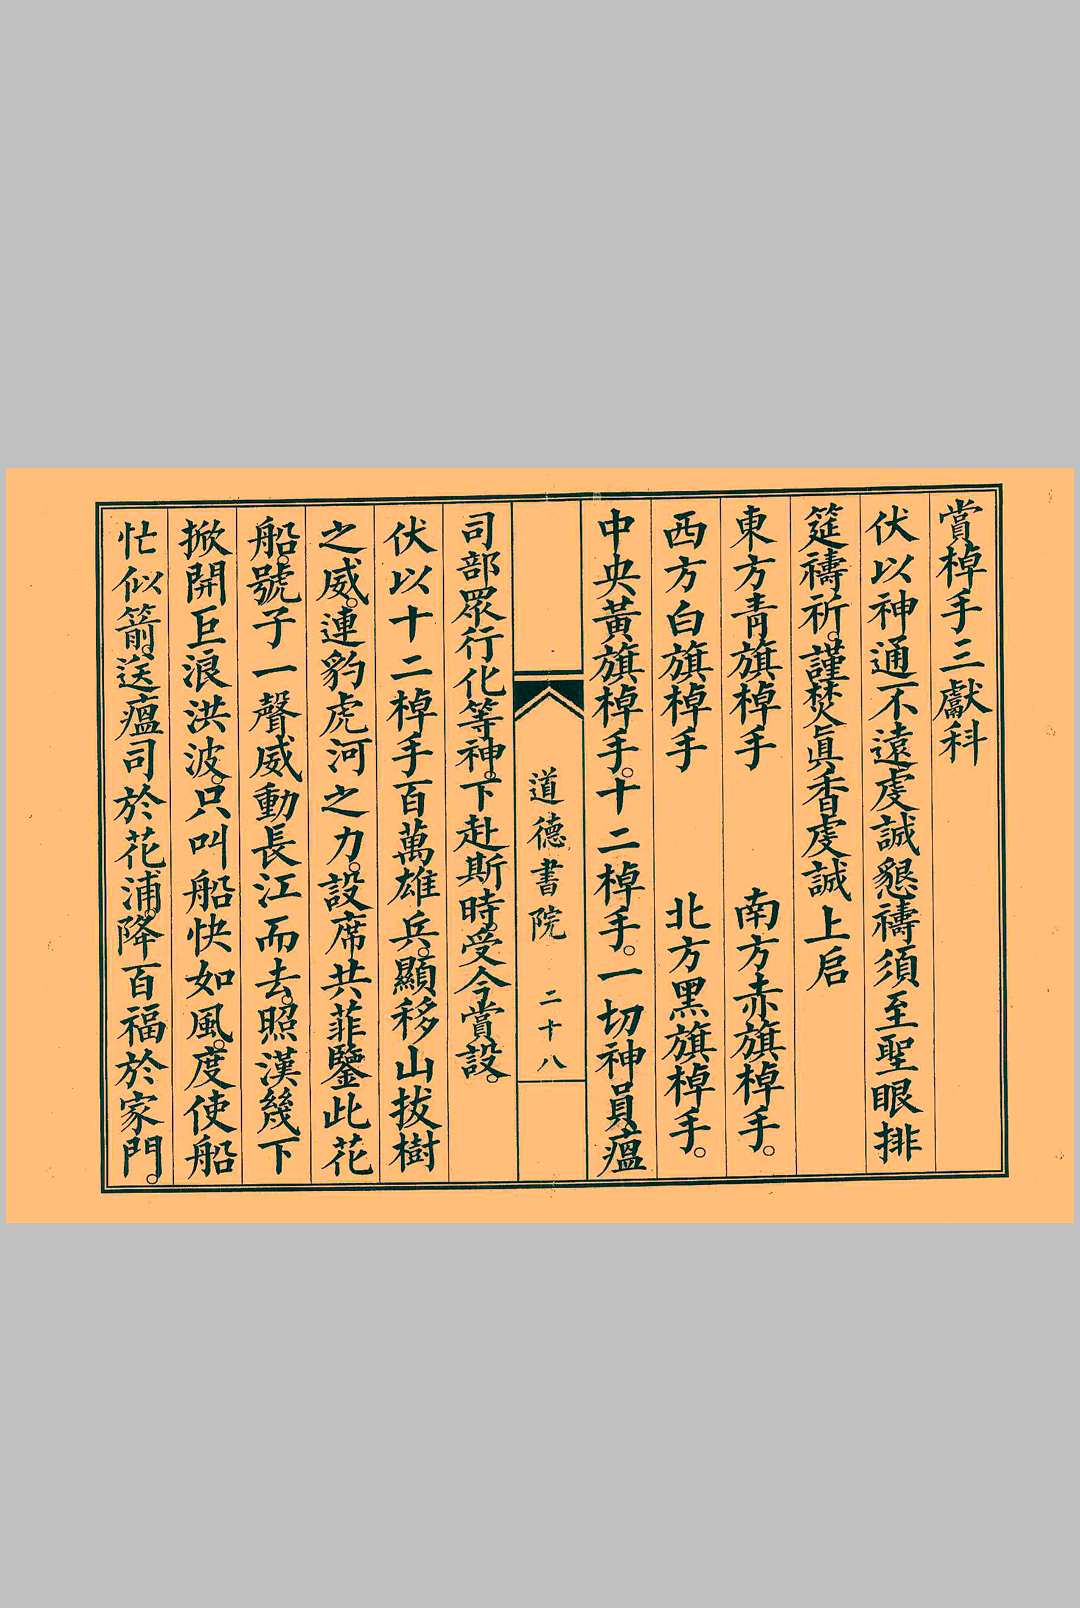 賞棹手三獻科
伏以神通不遠虔誠懇禱須至聖眼排
筵禱祈。謹焚眞香虔誠上启
東方青旗棹手 南方赤旗棹手。
西方白旗棹手 北方黑旗棹手。
中央黃旗棹手。十二棹手。一切神員瘟
道德書院 二十八
司部眾行化等神。下赴斯時。受今賞設。
伏以十二棹手百萬雄兵。顯移山拔樹
之威。連豹虎河之力。設席共菲鑒此花
船。號子一聲威動長江而去。照漢幾下
掀開巨浪洪波。只叫船快如風。度使船
忙似箭。送瘟司於花浦。降百福於家門。